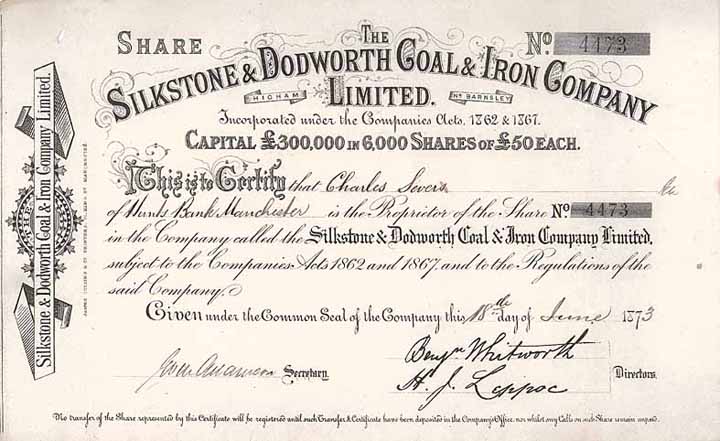 SHARE
No. 4473
THE
SILKSTONE & DODWORTH COAL & IRON COMPANY
HIGHAM
LIMITED.
Nr. BARNSLEY
Incorporated under the Companies Acts, 1862 & 1867.
CAPITAL £300,000 IN 6,000 SHARES OF £50 EACH.
This is to Certify that Charles Severs
of Hunts Bank Manchester is the Proprietor of the Share No 4473
in the Company called the Silkstone & Dodworth Coal & Iron Company Limited,
subject to the Companies Acts 1862 and 1867, and to the Regulations of the
said Company.
Given under the Common Seal of the Company this 18th day of June 1873
Secretary.
Benjn Whitworth
H. J. Leppoc
Directors.
No transfer of the Share represented by this Certificate will be registered until such Transfer & Certificate have been deposited in the Company's Office, nor whilst any Calls on such Share remain unpaid.
Silkstone & Dodworth Coal & Iron Company Limited.